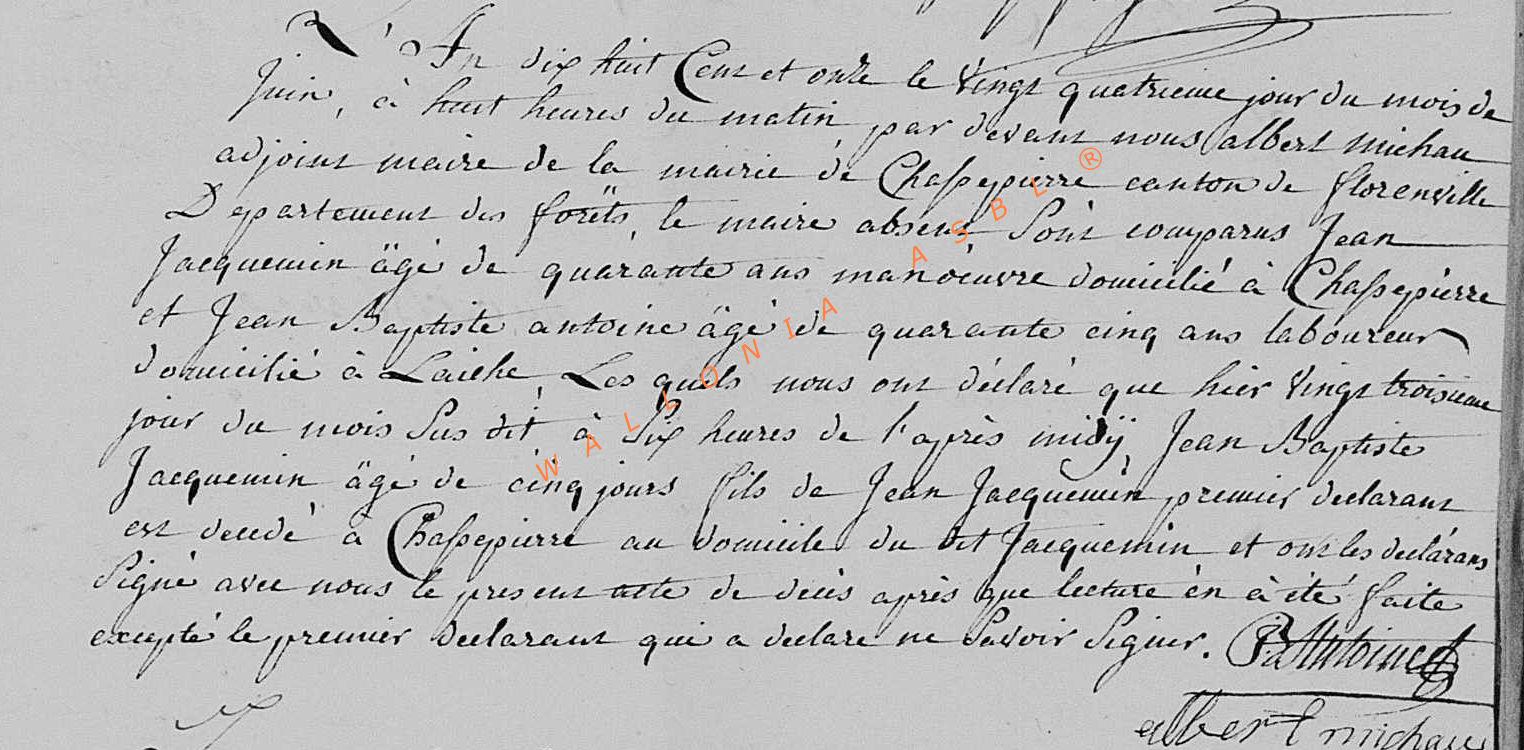 L'An dix huit Cent et onze le vingt quatrieme jour du mois de
Juin, à huit heures du matin par devant nous albert michau
adjoint maire de la mairie de Chassepierre canton de florenville
Departement des forêts, le maire absent, Sont comparus Jean
Jacquemin âgé de quarante ans manoeuvre domicilié à Chassepierre
et Jean Baptiste antoine âgé de quarante cinq ans laboureur
domicilié à Laiche, Les quels nous ont déclaré que hier vingt troisieme
jour du mois Sus dit à Six heures de l'après midÿ, Jean Baptiste
Jacquemin âgé de cinq jours fils de Jean Jacquemin premier declarant
est decedé à Chassepierre au domicile du dit Jacquemin et ont les declarans
Signé avec nous le present acte de décès après que lecture en à été faite
excepté le premier declarant qui a declare ne Savoir Signer. Antoine
albert michau
WALLONIA ASBL ®